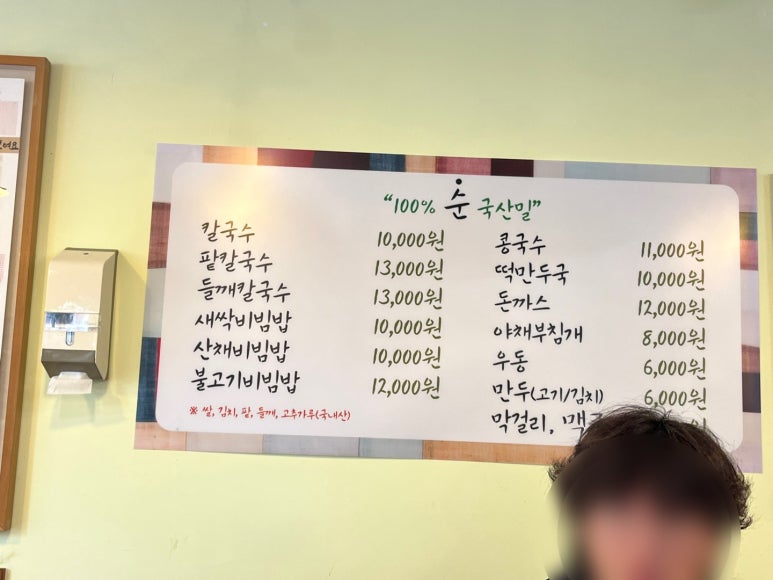 “100% 순 국산밀”
칼국수 10,000원
팥칼국수 13,000원
들깨칼국수 13,000원
새싹비빔밥 10,000원
산채비빔밥 10,000원
불고기비빔밥 12,000원
※ 쌀, 김치, 팥, 들깨, 고추가루(국내산)
콩국수 11,000원
떡만두국 10,000원
돈까스 12,000원
야채부침개 8,000원
우동 6,000원
만두(고기/김치) 6,000원
막걸리,